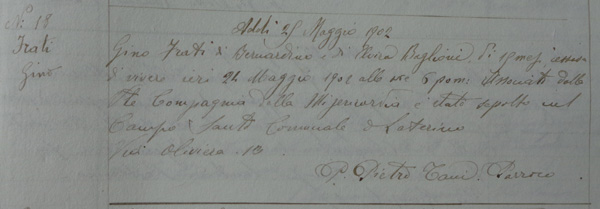 N. 18
Frati
Gino
Addi 25 Maggio 1902
Gino Frati di Bernardino e di Rosa Baglioni di 19 mesi, cessava
di vivere ieri 24 Maggio 1902 alle ore 6 pom: Associato dalla
Compagnia della Misericordia è stato sepolto nel
Campo Santo Comunale di Laterina
P. Pietro Tani Parroco